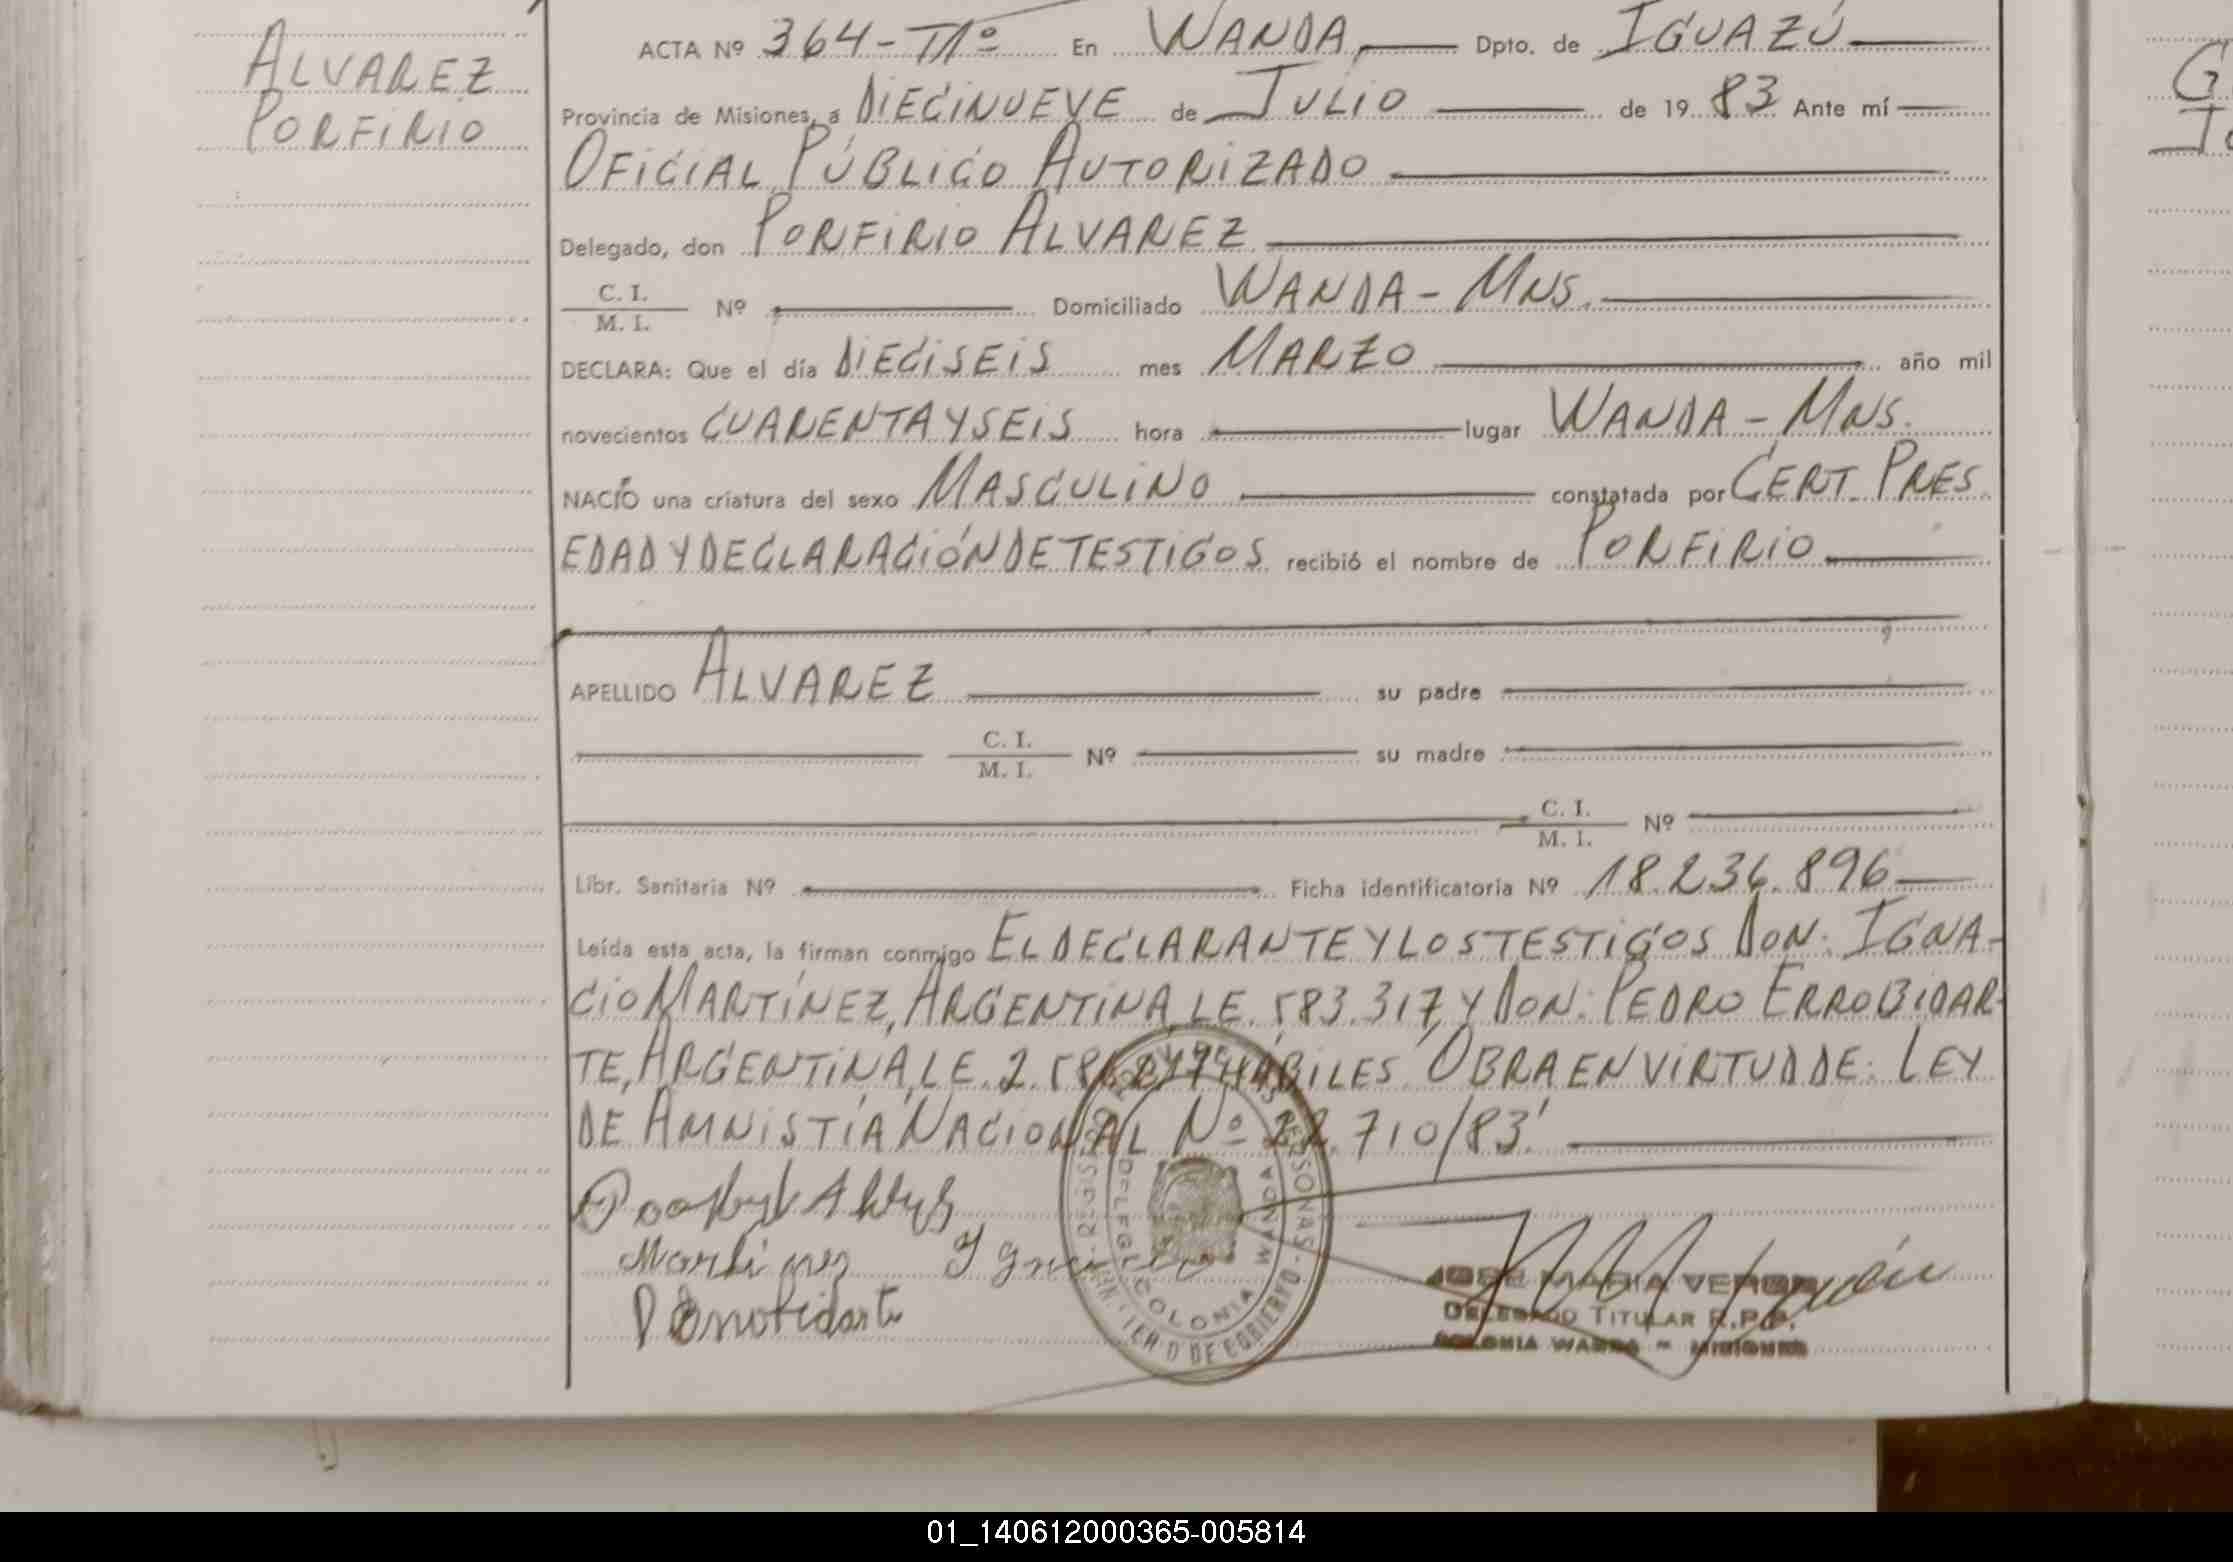 ALVAREZ
PORFIRIO
ACTA Nº 364-Tº1º En WANDA, Dpto. de IGUAZÚ
Provincia de Misiones, a DIECINUEVE de JULIO de 19 83 Ante mí
OFICIAL PÚBLICO AUTORIZADO
Delegado, don PORFIRIO ALVAREZ
C. I.
M. I. Nº Domiciliado WANDA - MNS.
DECLARA: Que el día DIECISEIS mes MARZO año mil
novecientos CUARENTA Y SEIS hora lugar WANDA - MNS.
NACIÓ una criatura del sexo MASCULINO constatada por CERT. PRES
EDAD Y DECLARACIÓN DE TESTIGOS recibió el nombre de PORFIRIO
APELLIDO ALVAREZ su padre
C. I.
M. I. Nº su madre
C. I.
M. I. Nº
Libr. Sanitaria Nº Ficha identificatoria Nº 18.236.896
Leída esta acta, la firman conmigo EL DECLARANTE Y LOS TESTIGOS DON: IGNA-
CIO MARTÍNEZ, ARGENTINA, L.E. 583.317, Y DON: PEDRO ERROBIDAR-
TE, ARGENTINA, L.E. 2. HÁBILES. OBRA EN VIRTUD DE: LEY
DE AMNISTÍA NACIONAL Nº 22.710/83'
Martinez Ygnacio
JOSE MARIA VERON
DELEGADO TITULAR R.P.P.
COLONIA WANDA - MISIONES
DELEG. COLONIA WANDA
01_140612000365-005814
G